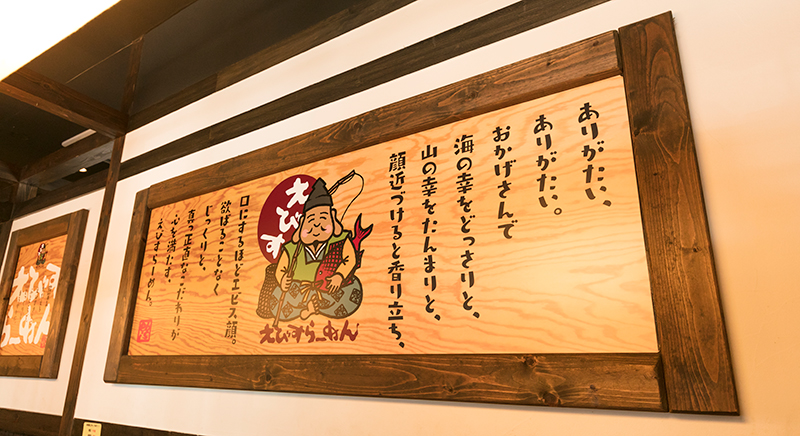 ありがたい、
ありがたい。
おかげさんで
海の幸をどっさりと、
山の幸をたんまりと、
顔近づけると香り立ち、
えびす
えびすらーめん
口にするほどエビス顔。
欲ばることなく
じっくりと、
真っ正直なこだわりが
心を満たす、
えびすらーめん。